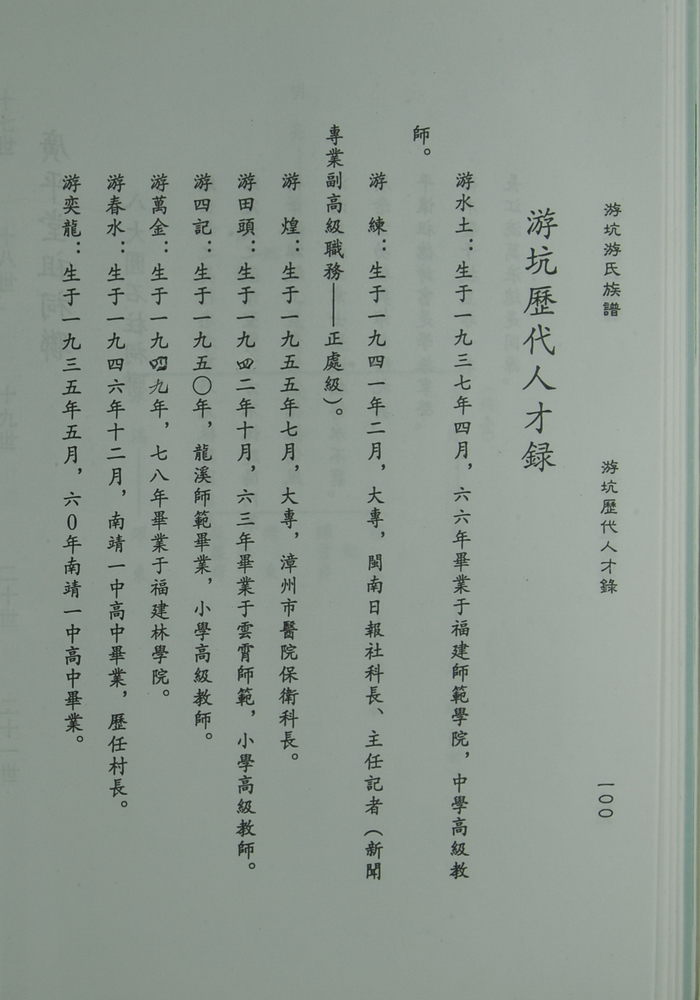 游坑游氏族譜
游坑歷代人才錄
一〇〇
游坑歷代人才録
游水土：生于一九三七年四月，六六年畢業于福建師範學院，中學高級教
師。
游　練：生于一九四一年二月，大專，閩南日報社科長、主任記者（新聞
專業副高級職務——正處級）。
游　煌：生于一九五五年七月，大專，漳州市醫院保衛科長。
游田頭：生于一九四二年十月，六三年畢業于雲霄師範，小學高級教師。
游四記：生于一九五〇年，龍溪師範畢業，小學高級教師。
游萬金：生于一九四九年，七八年畢業于福建林學院。
游春水：生于一九四六年十二月，南靖一中高中畢業，歷任村長。
游奕龍：生于一九三五年五月，六0年南靖一中高中畢業。